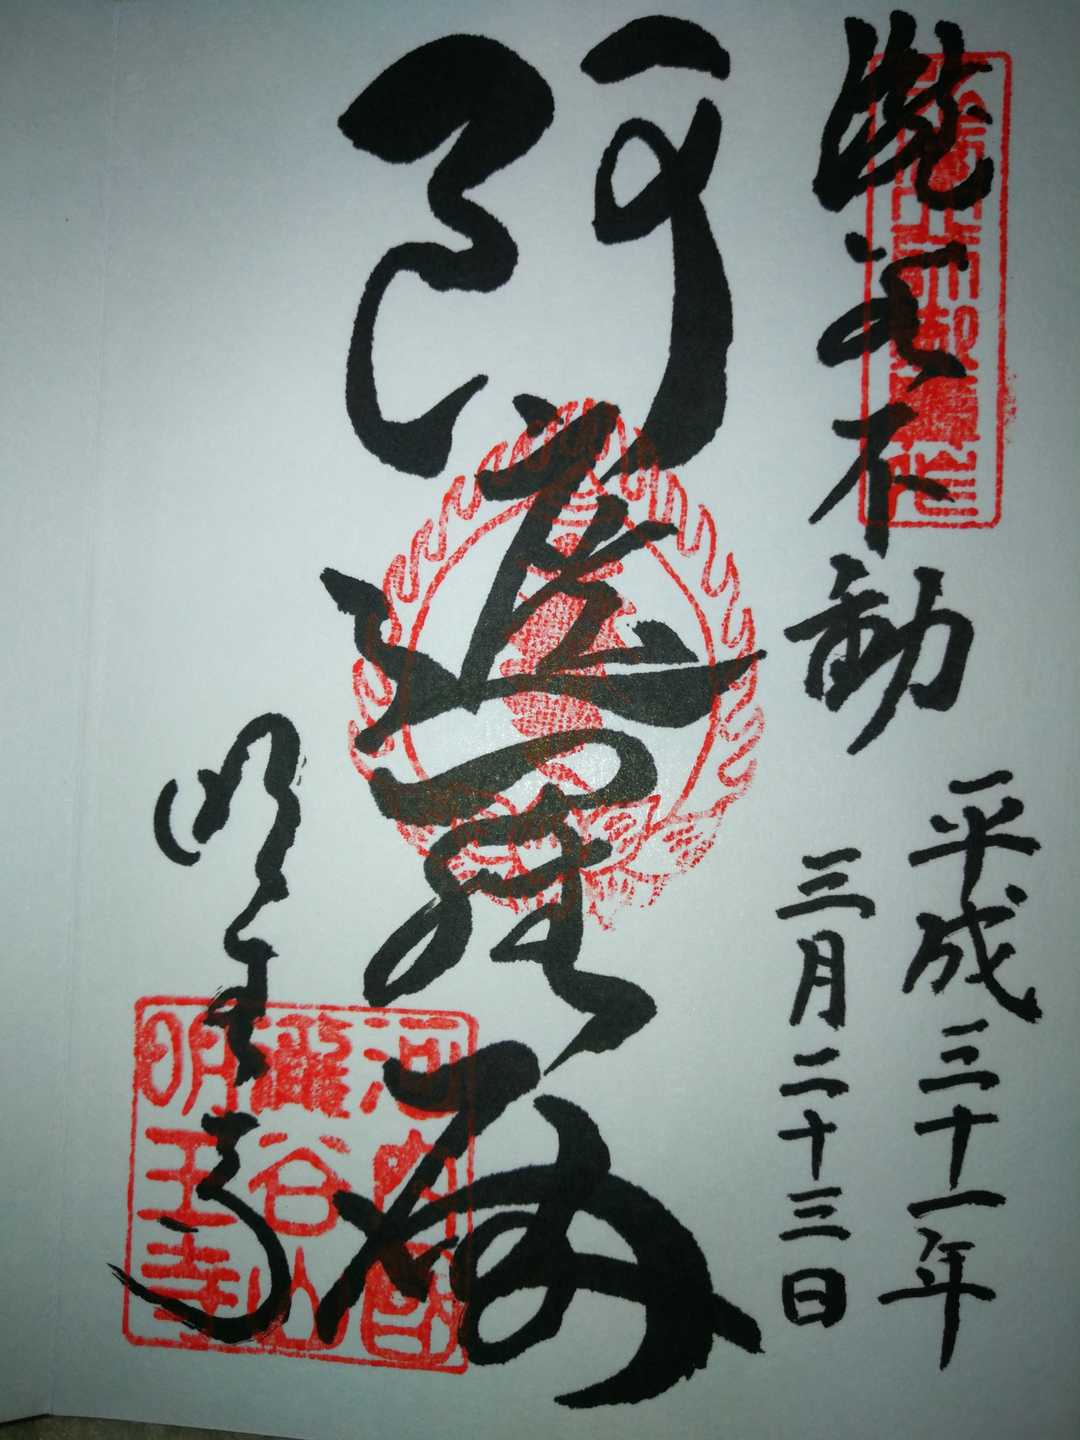 瀧谷不動
平成三十一年
三月二十三日
阿遮羅
明王寺
河内國
瀧谷山
明王寺